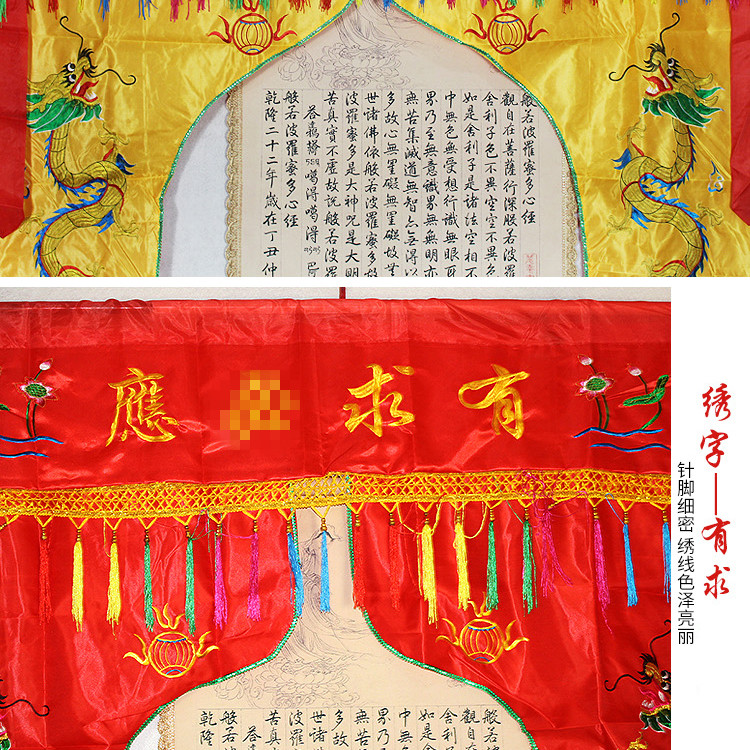 般若波羅蜜多心經
觀自在菩薩行深般若波羅
舍利子色不異空空不異色
如是舍利子是諸法空相不
中無色無受想行識無眼耳
界乃至無意識界無無明亦
無苦集滅道無智亦無得以
多故心無罣礙無罣礙故無
世諸佛依般若波羅蜜多故
波羅蜜多是大神咒是大明
苦真實不虛故說般若波羅
般若波羅蜜多心經
乾隆二十二年歲在丁丑仲
有求應
绣字—有求
针脚细密 绣线色泽亮丽
般若波
觀自在
舍利子
如是舍
中無色
界乃至
無苦集
多故心
世諸佛
波羅蜜
苦真實
般若波
乾隆二